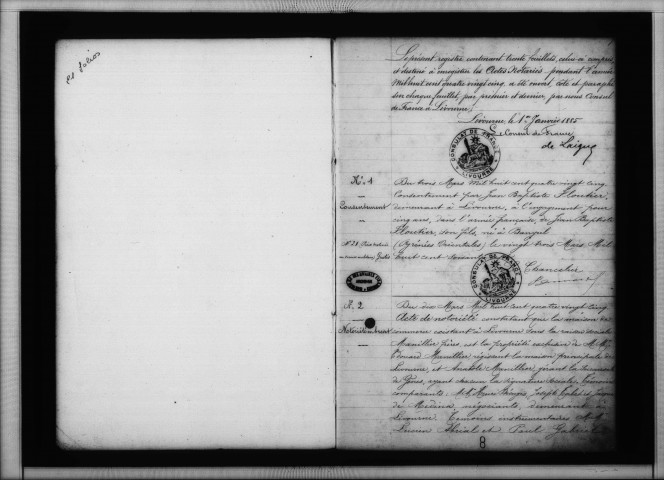 21 folios
Le présent registre, contenant trente feuillets, celui-ci compris
et destiné à enregistrer les Actes Notariés pendant l'année
Mil huit cent quatre vingt cinq, a été ouvert, coté et paraphé
sur chaque feuillet, par premier et dernier, par nous Consul
de France à Livourne.
Livourne, le 1er Janvier 1885
Le Consul de France
de Laigue
CONSULAT DE FRANCE
LIVOURNE
No. 1
Consentement
Du trois Mars Mil huit cent quatre vingt cinq
Consentement par Jean Baptiste
demeurant à Livourne, à l'engagement pour
cinq ans, dans l'armée française, de Jean Baptiste
son fils, né à
(Pyrénées Orientales) le vingt trois Mars Mil
huit cent soixante
CONSULAT DE FRANCE
LIVOURNE
Chancelier
No. 2
Notoriété
Du dix Mars Mil huit cent quatre vingt cinq
Acte de notoriété constatant que la maison de
commerce existant à Livourne sous la raison sociale
Manillier frères est la propriété exclusive de M. M.
Edouard Manillier, régissant la maison principale de
Livourne, et Anatole Manillier, gérant la succursale
de Gênes, ayant chacun la signature sociale. Témoins
comparants: M. M. Joseph
de Medina, négociants, demeurant à
Livourne. Témoins instrumentaires M. M.
Lucien et Paul
8